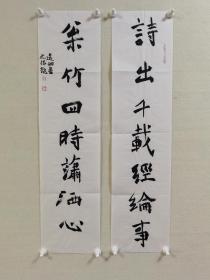 詩出千載經綸事
菜竹四時蕭洒心